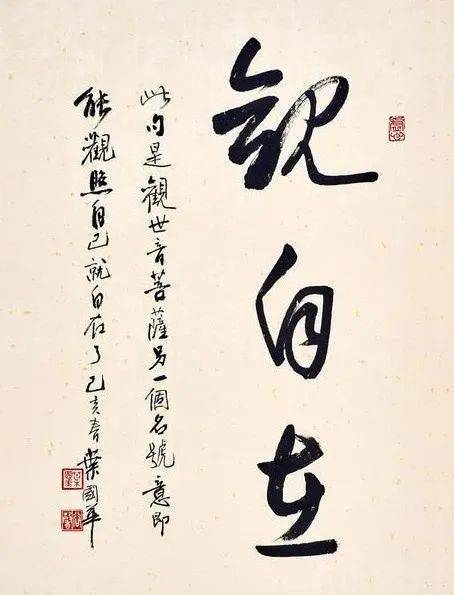 觀自在
此句是觀世音菩薩另一個名號意即
能觀照自己就自在了己亥春葉國年